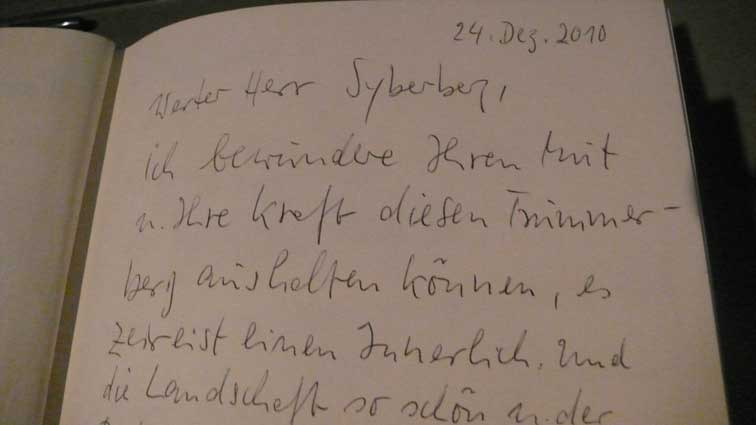 24. Dez. 2010
Werter Herr Syberberg,
ich bewundere Ihren Mut
u. Ihre Kraft diesen Trümmer-
berg aushalten können, es
zerreist einen Innerlich. Und
die Landschaft so schön u. der